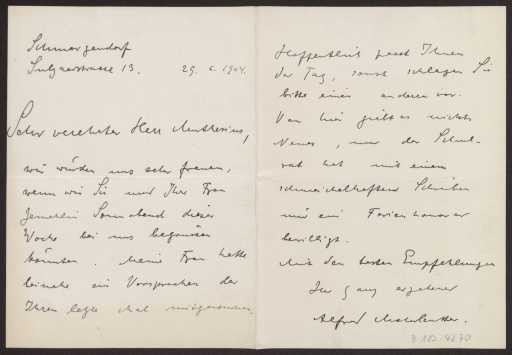 Schmargendorf
Sulzaerstrasse 13. 29. 6. 1904.
Sehr verehrter Herr Muthesius,
wir würden uns sehr freuen,
wenn wir Sie und Ihre Frau
Gemahlin Sonnabend dieser
Woche bei uns begrüssen
könnten. Meine Frau hatte
beinahe ein Versprechen der
Ihren letzte Mal mitgenommen.
Hoffentlich passt Ihnen
der Tag, sonst schlagen Sie
bitte einen anderen vor.
Von hier giebt es nichts
Neues, nur der Schul-
rat hat mit einem
schmeichelhaften Schreiben
mir ein Ferienhonorar
bewilligt.
Mit den besten Empfehlungen
Ihr ganz ergebener
Alfred Mohrbutter.